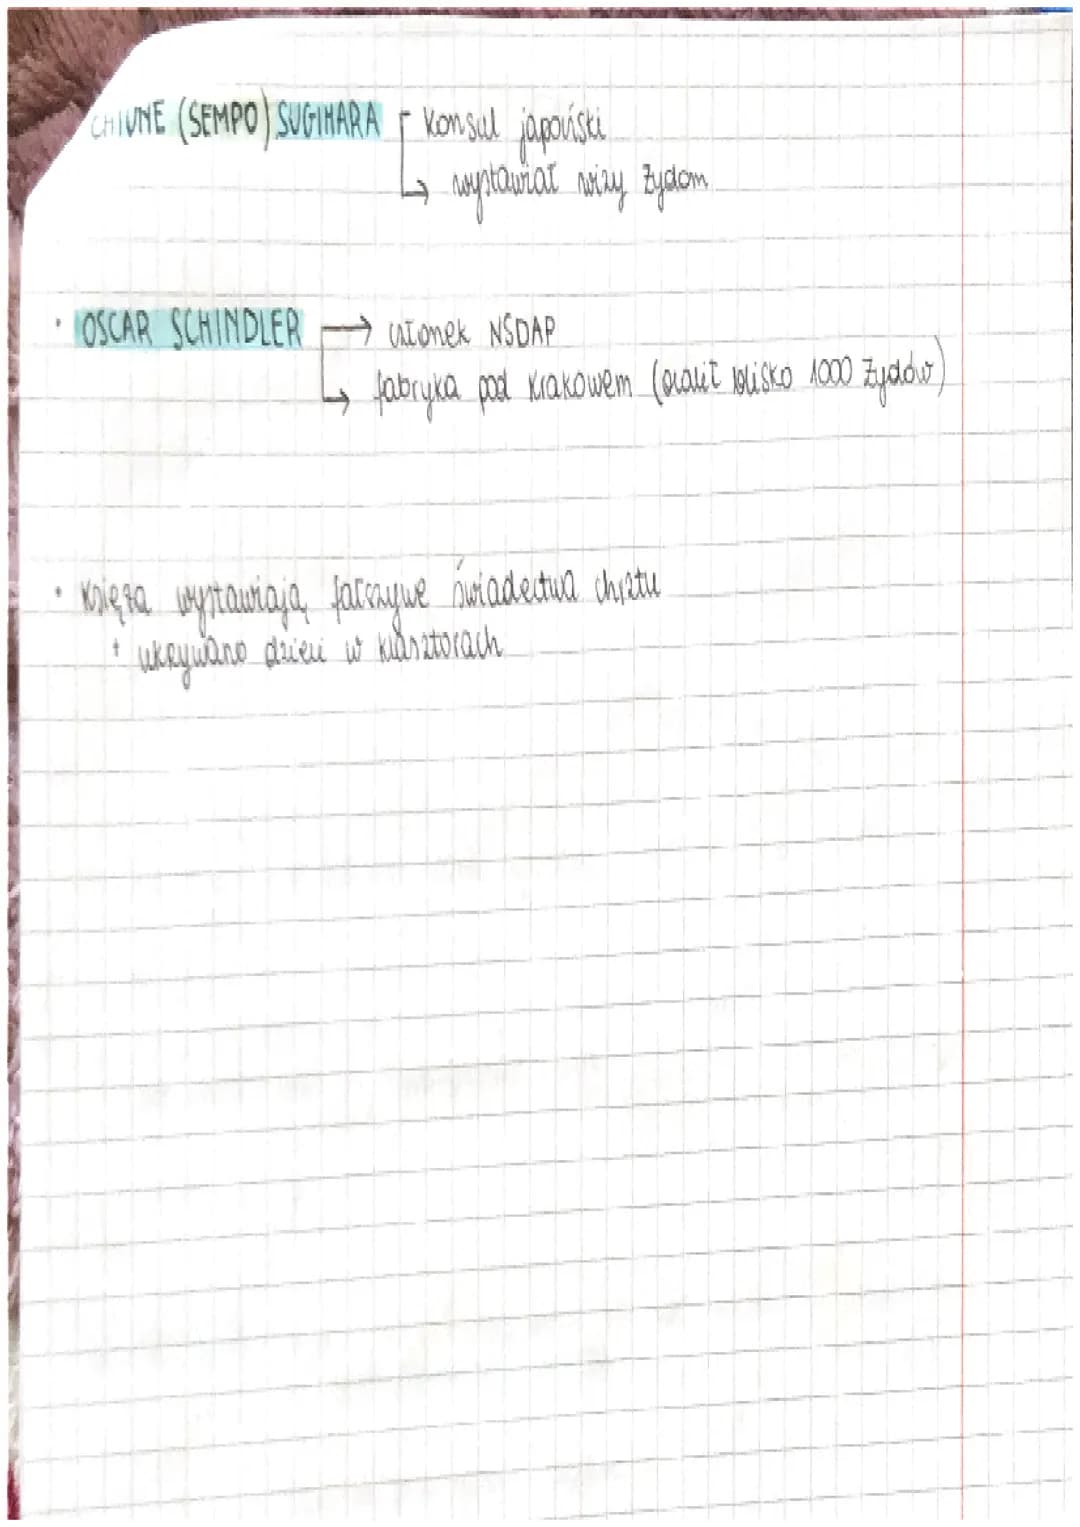 CHIUNE (SEMPO) SUGIHARA Konsul japoński
→ wystawiał wizy Żydom
• OSCAR SCHINDLER → członek NSDAP
→ fabryka pod Krakowem (ocalił blisko 1000 Żydów)
• Księża wystawiają fałszywe świadectwa chrztu
+ ukrywano dzieci w klasztorach